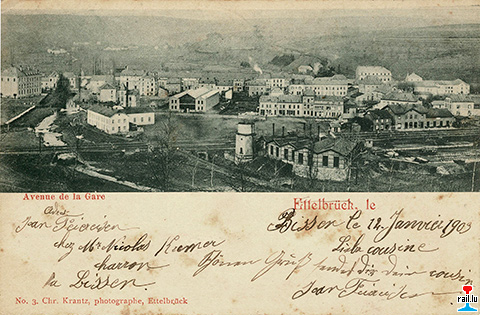 Avenue de la Gare
Ettelbrück, le
Bissen le 12 Janvier 1903
Jean
chez Mr Nicolas Kremer
charron
à Bissen
Liebe cousine
Schönen Gruß sendet dir dein cousin
Jean
No. 3. Chr. Krantz, photographe, Ettelbrück
rail.lu